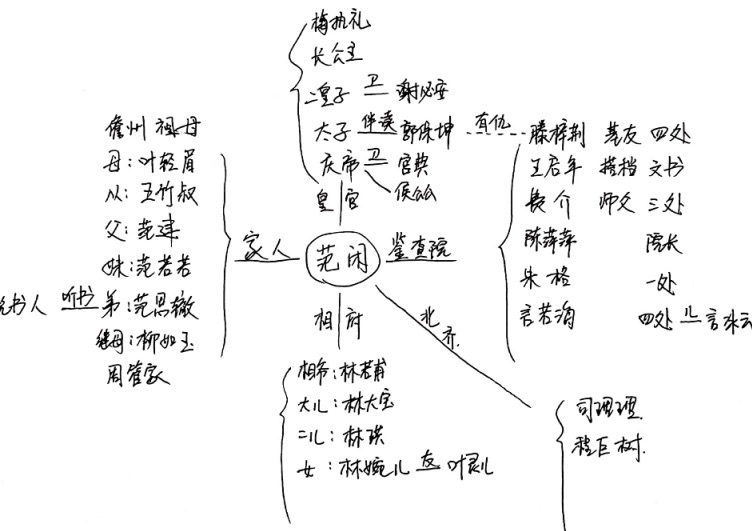 梅执礼
长公主
二皇子 卫 谢必安
太子 伴读 郭保坤 有仇 滕梓荆 基友 四处
庆帝 卫 宫典
侯公公
皇宫
儋州祖母
母:叶轻眉
从:五竹叔
父:范建
妹:范若若
说书人 听书 弟:范思辙
继母:柳如玉
周管家
家人
范闲
鉴查院
王启年 搭档 文书
费介 师父 三处
陈萍萍 院长
朱格 一处
言若海 四处 儿 言冰云
相府
相爷:林若甫
大儿:林大宝
二儿:林珙
女:林婉儿 友 叶灵儿
北齐
司理理
程巨树